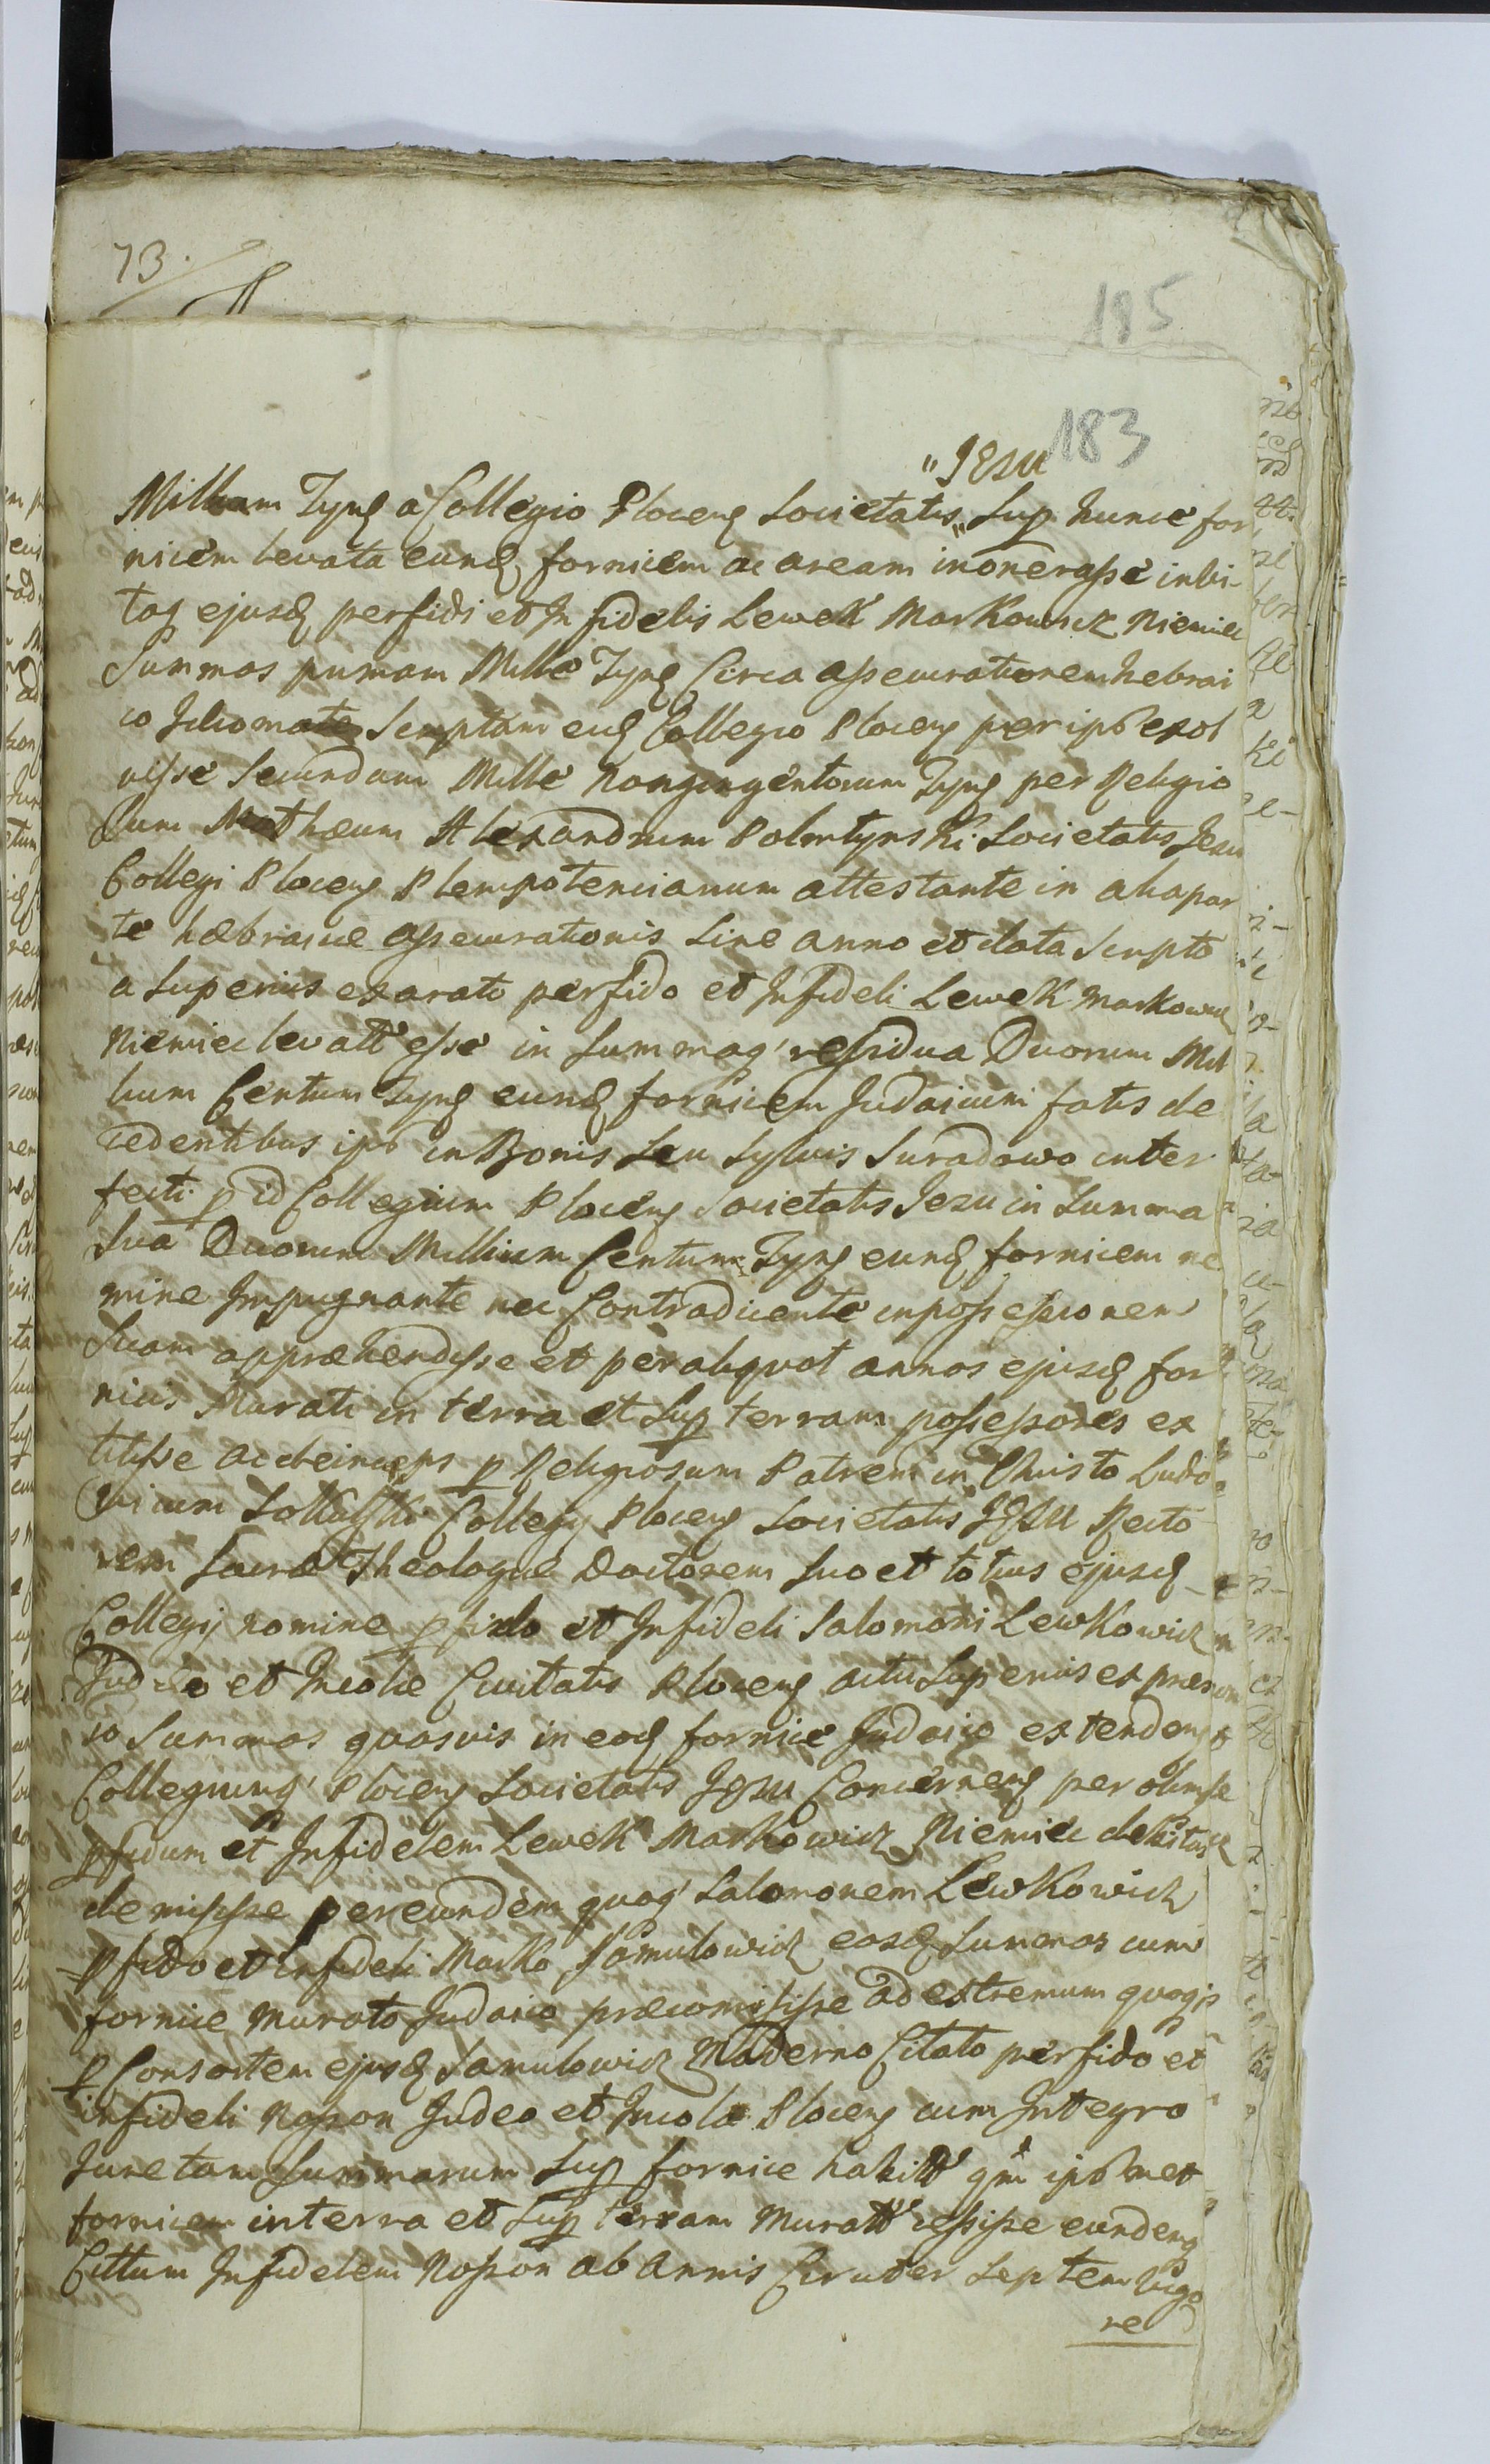 73.
185
183
"JEsu
Millium Tynf a Collegio Plocens Societatis " Sup hunce for
nicem levata eund fornicem ac aream inonerasse inbi-
tos ejusd perfidi et Infidelis Lewek Markowicz Niemiec
Summas primam Mille Tynf Circa assecurationem hebrai
co Idiomate Scriptam eid Collegio Plocens per ips exol
visse Secundam Mille Nongengentorum Tynf per Religio
sum Mathæum Alexandrum Polmtynski Societatis Jesu
Collegi Plocens Plenipotenciarium attestante in alia par
te hæbraicæ assecurationis Sine anno et data Scripto
a Superius exarato perfido et Infideli Lewek Markowicz
Niemiec levatt esse in Summaq' residua Duorum Mil
lium Centum Tynf eund fornicem Judaicum fatis de
cedentibus ips in Bonis Seu Sylvis Suradowo inter
fecti p id Collegium Plocens Societatis Jesu in Summa
Sua Duorum Millium Centum Tynf eund fornicem ne
mine Impugnante nec Contradicente in possessionem
Suam appræhendisse et per aliquot annos ejusd for
nicis Murati in terra et Sup terram possessores ex
titisse ac deinceps p Religiosum Patrem in Christo Ludo
vicum Sokulski Collegij Plocens Societatis JESU Recto
rem Sacræ Theologiæ Doctorem Suo et totius ejusd
Collegij nomine pfido et Infideli Salomoni Lewkowicz
Judæo et Incolæ Civitatis Plocens actu Superius expres
so Summas quasvis in eod fornice Judaico extendens
Collegiumq' Plocens Societatis JESU Concernens per olim se
pfidum et Infidelem Lewek Markowicz Niemiec debitas
demisisse per eundem quoq' Salomonem Lewkowicz
pfido et Infideli Marko Samulowicz easd Summas cum
fornice Murato Judaico præcomisisse ad extremum quoq
p Consortem ejusd Samulowicz Moderno Citato perfido et
infideli Nosson Judeo et Incolæ Plocens cum Integro
Jure tam Summarum Sup fornice habitt qm ips met
fornicem in terra et Sup terram Muratt cessisse eundemq
Cittum Infidelem Nosson ab Annis Circiter Septem vigo
re